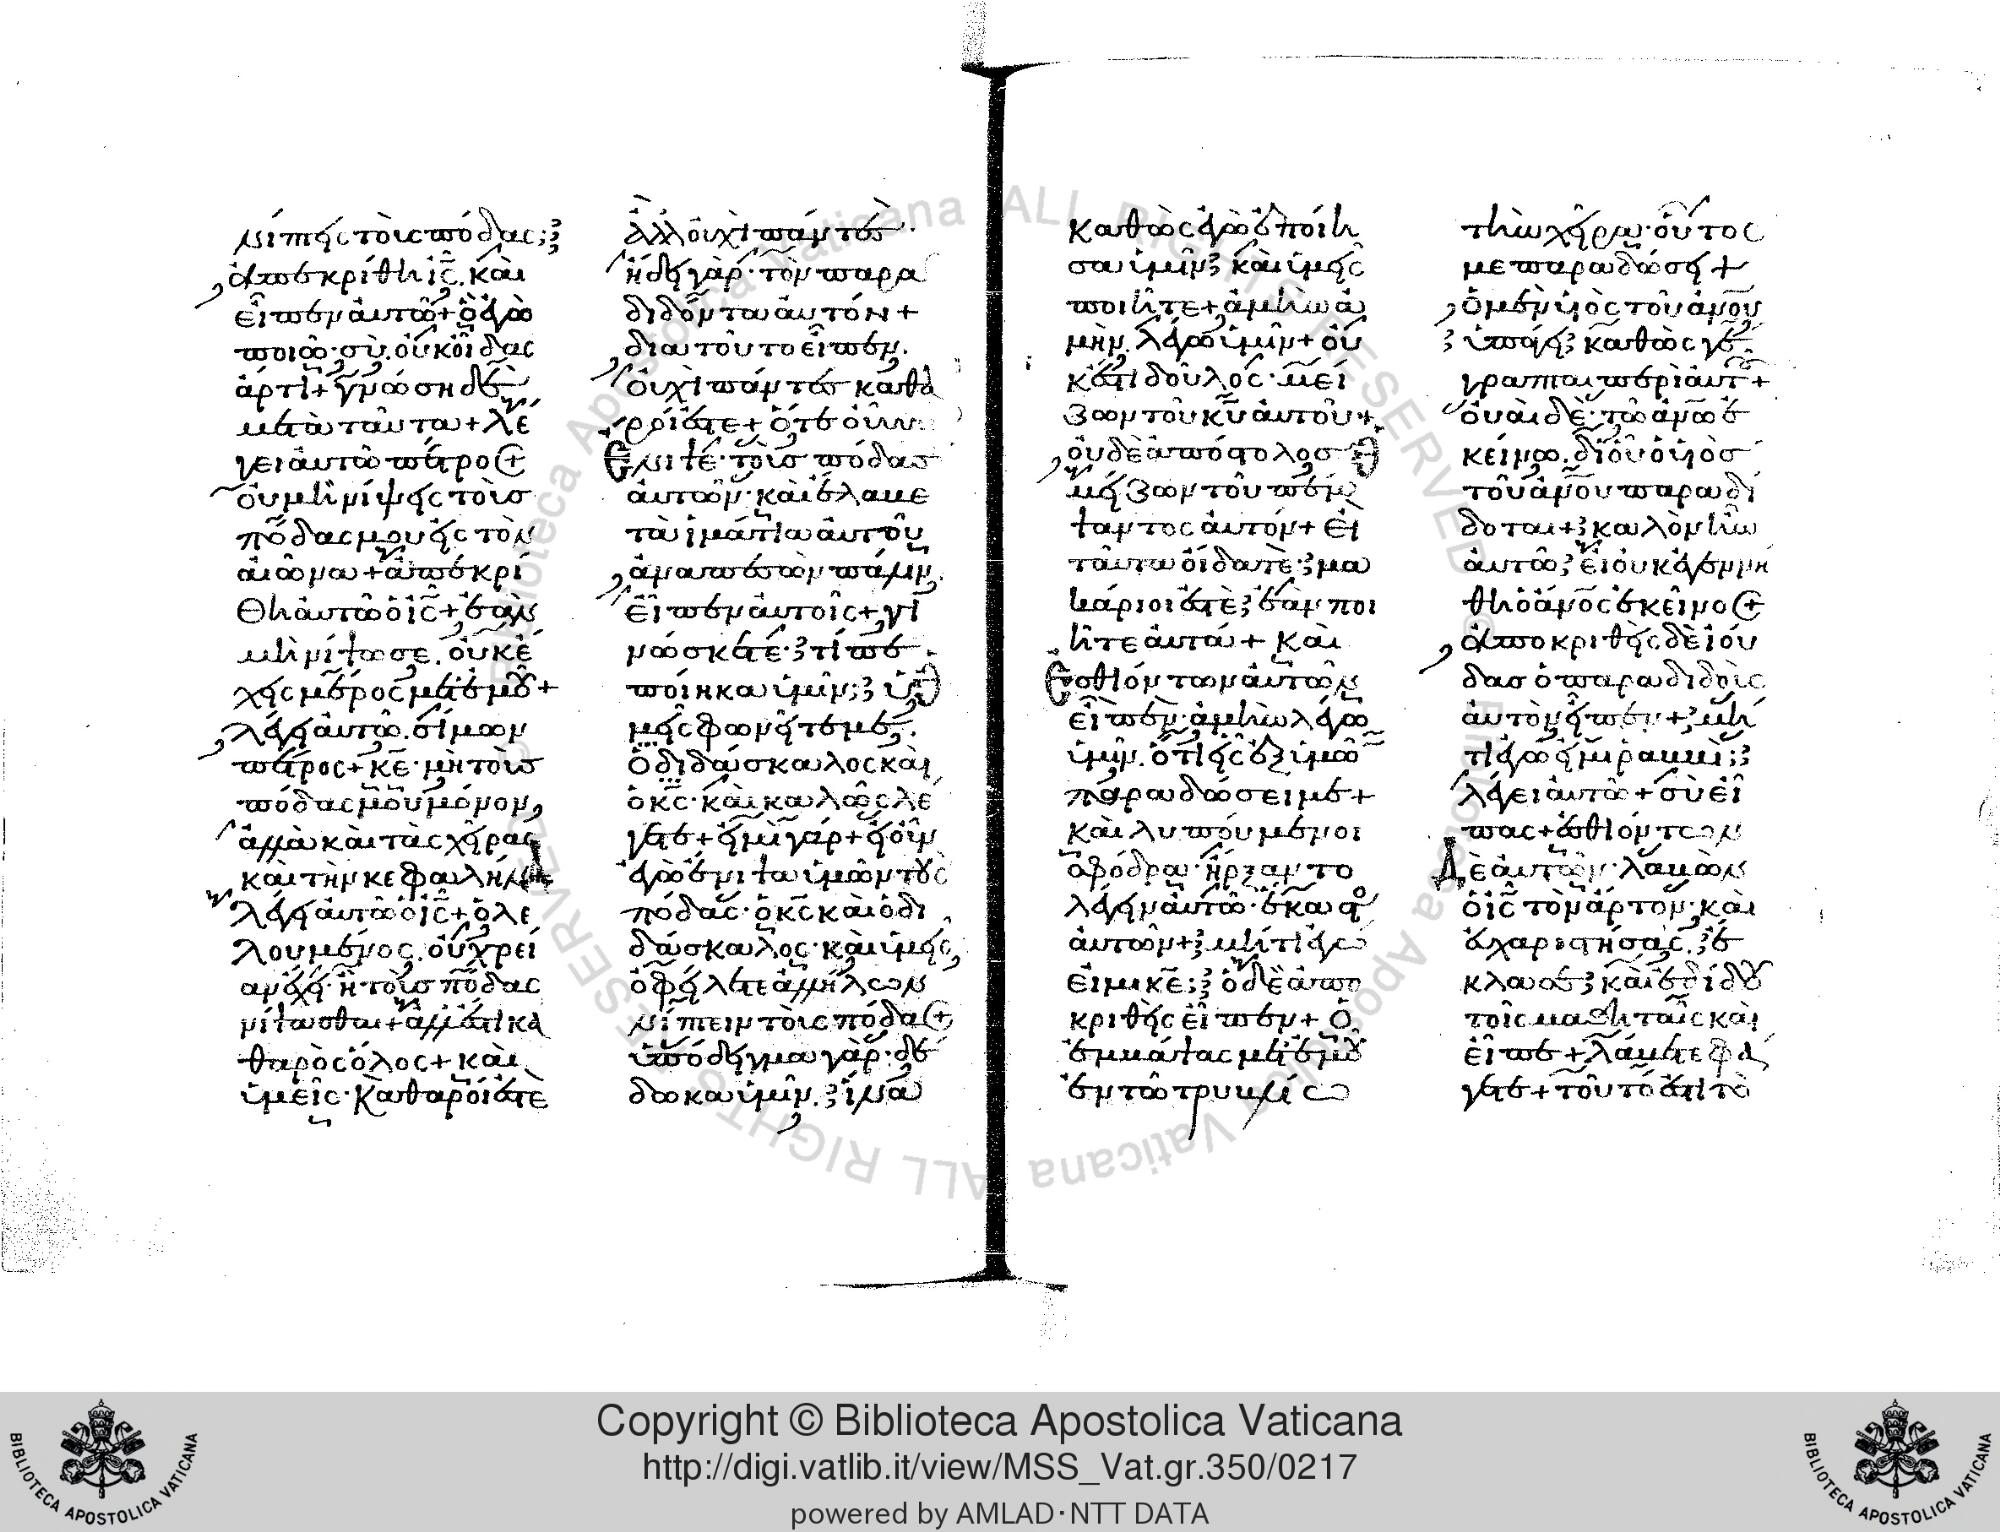 νίπτεις τοὺς πόδας;
ἀπεκρίθη ἰς̅. καὶ
εἶπεν αὐτῶ+ ὃ ἐγὼ
ποιῶ· σὺ. οὐκ οἶδας
ἄρτι+ γνώση δὲ
μετὰ ταῦτα+ λέ
γει αὐτῶ πέτρος+
οὐ μὴ νίψεις τοὺσ
πόδας μου εἰς τὸν
αἰῶνα+ ἀπεκρί
θη αὐτῶ ὁ ἰς̅+ ἐὰν
μὴ νίψω σε. οὐκ ἔ
χεις μέρος μετ' ἐμοῦ+
λέγει αὐτῶ. σίμων
πέτρος+ κε̅· μὴ τοὺσ
πόδας μου μόνον,
ἀλλὰ καὶ τὰς χεῖρας
καὶ τὴν κεφαλήν
λέγει αὐτῶ ὁ ἰς̅+ ὁ λε
λουμένος. οὐ χρεί
αν ἔχει· ἢ τοὺσ πόδας
νίψασθαι+ ἀλλ' ἔστι κα
θαρὸς ὅλος+ καὶ
ὑμεῖς· καθαροί ἐστε
ἀλλ' οὐχὶ πάντες·
ἤδει γὰρ· τὸν παρα
διδόντα αὐτόν+
διὰ τοῦτο εἶπεν.
οὐχὶ πάντες καθα
ροί ἐστε+ ὅτε οὖν
ἔνιψε· τοὺσ πόδασ
αὐτῶν· καὶ ἔλαβε
τὰ ἱμάτια αὐτοῦ
ἀναπεσὼν πάλιν.
εἶπεν αὐτοῖς+ γι
νώσκετε· τί πε
ποίηκα ὑμῖν; ὑ
μεῖς φωνεῖτέ με.
ὁ διδάσκαλος καὶ
ὁ κς̅· καὶ καλῶς λέ
γετε+ εἰμὶ γάρ+ εἰ οὖν
ἐγὼ ἔνιψα ὑμῶν τοὺς
πόδας· ὁ κς̅ καὶ ὁ δι
δάσκαλος· καὶ ὑμεῖς,
ὀφείλετε ἀλλήλων
νίπτειν τοὺς πόδας+
ὑπόδειγμα γὰρ· δέ
δωκα ὑμῖν. ἵνα
καθὼς ἐγὼ ἐποίη
σα ὑμῖν καὶ ὑμεῖς
ποιῆτε+ ἀμὴν ἀ
μὴν. λέγω ὑμῖν+ οὐ
κ ἔστι δοῦλος· μεί
ζων τοῦ κυ̅ αὐτοῦ+
οὐδὲ ἀπόστολοσ
μείζων τοῦ πέμ
ψαντος αὐτόν+ εἰ
ταῦτα οἴδατε· μα
κάριοι ἐστὲ ἐὰν ποι
ῆτε αὐτά+ καὶ
ἐσθιόντων αὐτῶν
εἶπεν· ἀμὴν λέγω
ὑμῖν. ὅτι εἷς ἐξ ὑμῶν
παραδώσει με+
καὶ λυπούμενοι
σφόδρα· ἤρξαντο
λέγειν αὐτῶ· ἕκαστος
αὐτῶν+ μήτι ἐγώ
εἰμι κε̅; ὁ δὲ ἀπο
κριθεὶς εἶπεν+ ὁ
ἐμβάψας μετ' ἐμοῦ
ἐν τῶ τρυβλίω
τὴν χεῖρα· οὗτος
με παραδώσει+
ὁ μὲν υἱὸς τοῦ ἀνου̅
ὑπάγει καθὼς γέ
γραπται περὶ αὐτοῦ+
οὐαὶ δὲ· τῶ ἀνω̅ ἐ
κείνω. δι' οὗ ὁ υἱὸσ
τοῦ ἀνου̅ παραδί
δοται+ καλὸν ἦν
αὐτῶ εἰ οὐκ ἐγεννή
θη ὁ ἀνος̅ ἐκεῖνος+
ἀποκριθεὶς δὲ ἰού
δασ ὁ παραδιδοὺς
αὐτὸν εἶπεν+ μή
τι ἐγώ εἰμι ῥαββί;
λέγει αὐτῶ+ σὺ εἶ
πας+ ἐσθιόντων
δὲ αὐτῶν· λαβὼν
ὁ ἰς̅ τὸν ἄρτον· καὶ
εὐχαριστήσας. ἔ
κλασε καὶ ἐδίδου
τοῖς μαθηταῖς καὶ
εἶπε+ λάβετε φά
γετε+ τοῦτό ἐστι τὸ
Copyright © Biblioteca Apostolica Vaticana
http://digi.vatlib.it/view/MSS_Vat.gr.350/0217
powered by AMLAD·NTT DATA
BIBLIOTECA APOSTOLICA VATICANA
BIBLIOTECA APOSTOLICA VATICANA